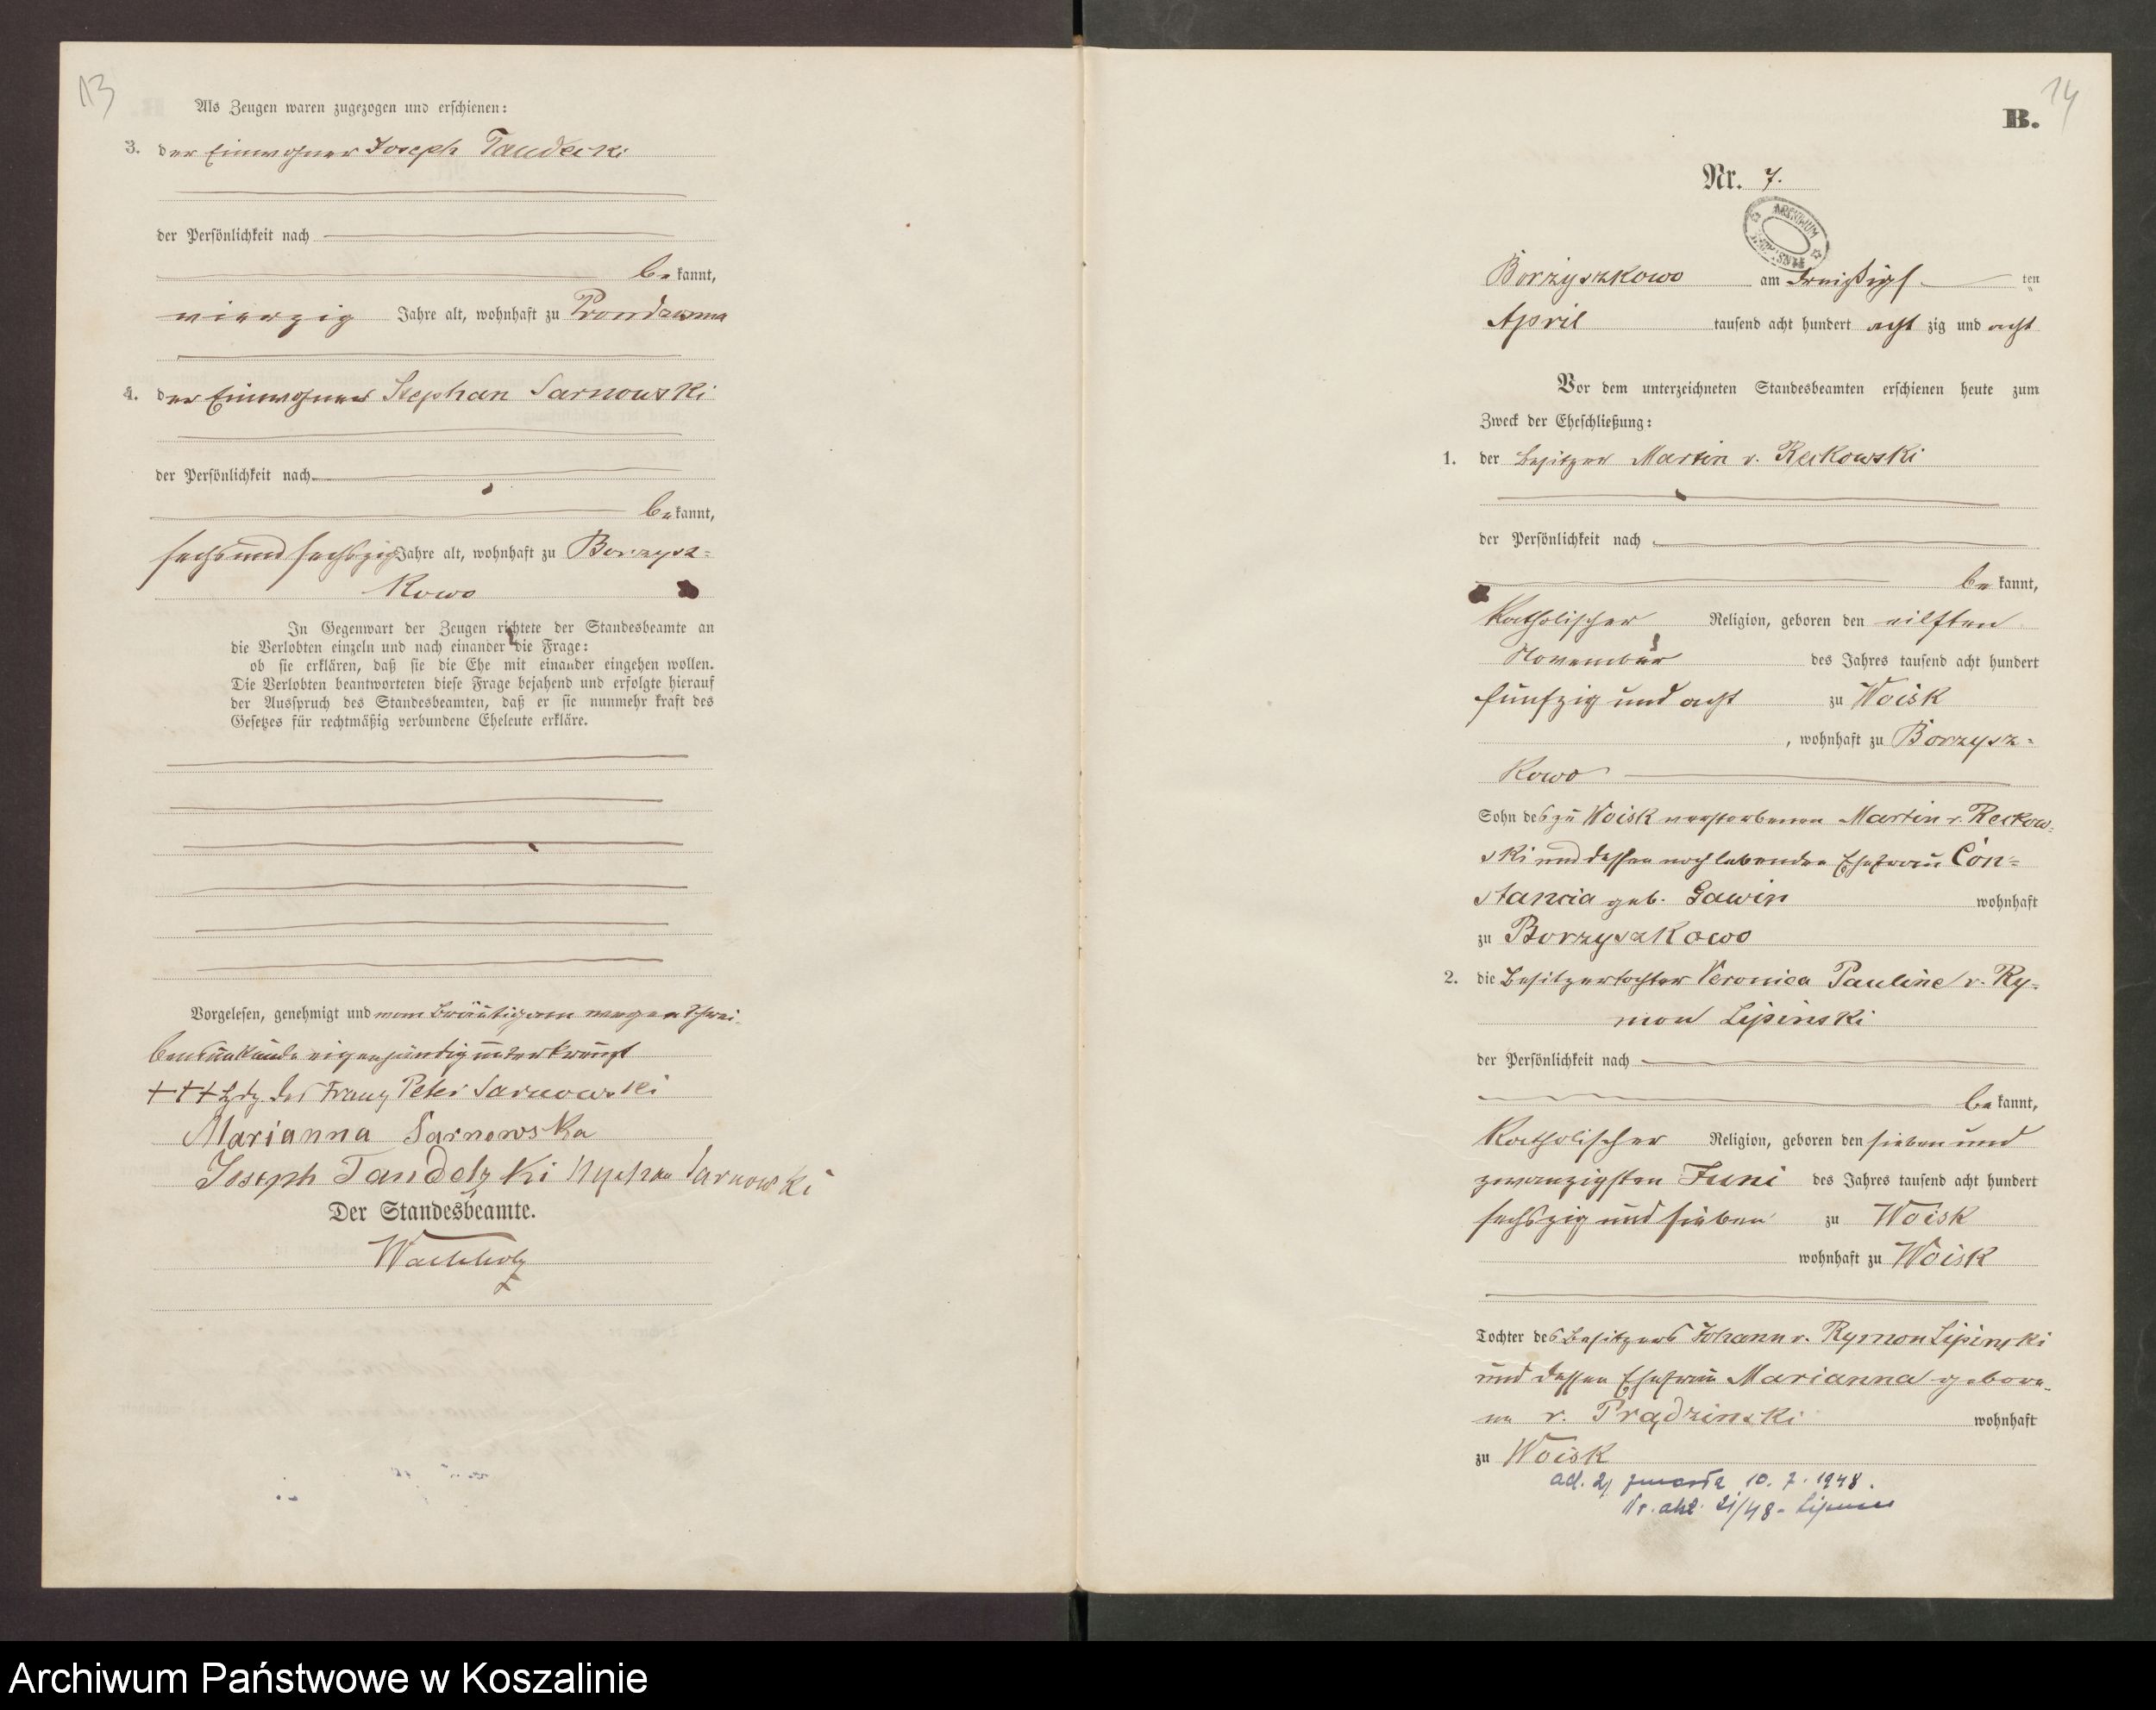 13
Als Zeugen waren zugezogen und erschienen:
3. der Einwohner Joseph Tandecki
der Persönlichkeit nach
be kannt,
vierzig Jahre alt, wohnhaft zu Prondzonna
4. der Einwohner Stephan Sarnowski
der Persönlichkeit nach
be kannt,
sechs und sechszig Jahre alt, wohnhaft zu Borzysz=
kowo
In Gegenwart der Zeugen richtete der Standesbeamte an
die Verlobten einzeln und nach einander die Frage:
ob sie erklären, daß sie die Ehe mit einander eingehen wollen.
Die Verlobten beantworteten diese Frage bejahend und erfolgte hierauf
der Ausspruch des Standesbeamten, daß er sie nunmehr kraft des
Gesetzes für rechtmäßig verbundene Eheleute erkläre.
Vorgelesen, genehmigt und vom Bräutigam wegen Schrei-
bensunkunde eigenhändig unterkreuzt
+++ Hdz. des Franz Peter Sarnowski
Marianna Sarnowska
Joseph Tandetzki Sarnowski
Der Standesbeamte.
Wachholz
14
B.
Nr. 7.
ARCHIWUM
Borzyszkowo am dreißigs ten
April tausend acht hundert acht zig und acht
Vor dem unterzeichneten Standesbeamten erschienen heute zum
Zweck der Eheschließung:
1. der Besitzer Martin v. Reckowski
der Persönlichkeit nach
be kannt,
katholischer Religion, geboren den eilften
November des Jahres tausend acht hundert
fünfzig und acht zu Woisk
, wohnhaft zu Borzysz=
kowo
Sohn des zu Woisk verstorbenen Martin v. Reckow=
ski und dessen noch lebenden Ehefrau Con=
stancia geb. Gawin wohnhaft
zu Borzyszkowo
2. die Besitzertochter Veronica Pauline v. Ry=
mon Lipinski
der Persönlichkeit nach
be kannt,
katholischer Religion, geboren den sieben und
zwanzigsten Juni des Jahres tausend acht hundert
sechszig und sieben zu Woisk
wohnhaft zu Woisk
Tochter des Besitzers Johann v. Rymon Lipinski
und dessen Ehefrau Marianna gebore-
ne v. Prądzinski wohnhaft
zu Woisk
ad. 2) zmarła 10. 7. 1948.
Nr. akt. 21/48 - Lipnica
Archiwum Państwowe w Koszalinie